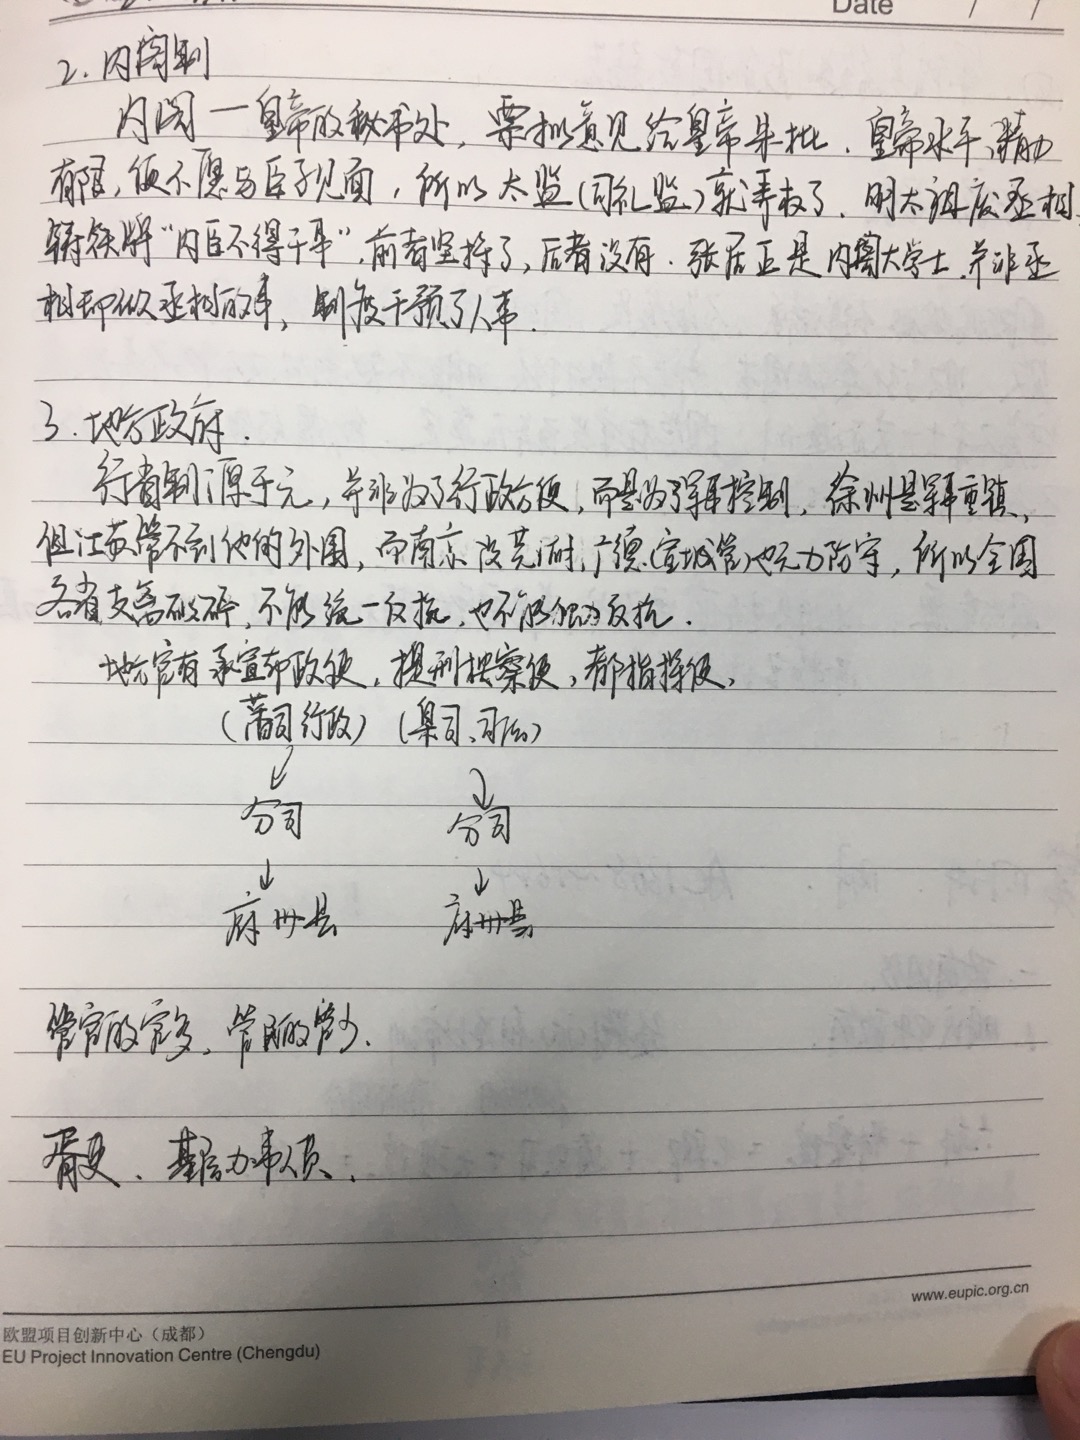 Date / /
2. 内阁制
内阁一皇帝的秘书处, 票拟意见给皇帝朱批. 皇帝水平、精力
有限, 便不愿与臣子见面, 所以太监(司礼监)就弄权了. 明太祖废丞相,
铸铁牌“内臣不得干事”. 前者坚持了, 后者没有. 张居正是内阁大学士, 并非丞
相却做丞相的事, 制度干预了人事.
3. 地方政府.
行省制源于元, 并非为了行政方便, 而是为了军事控制, 徐州是军事重镇,
但江苏管不到他的外围, 而南京没芜湖, 广德(宣城管)也无力防守, 所以全国
各省支离破碎, 不能统一反抗, 也不能独力反抗.
地方官有承宣布政使, 提刑按察使, 都指挥使,
(藩司行政) (臬司、司法)
分司 分司
府州县 府州县
管官的官多, 管民的官少.
胥吏、基层办事人员.
www.eupic.org.cn
欧盟项目创新中心(成都)
EU Project Innovation Centre (Chengdu)